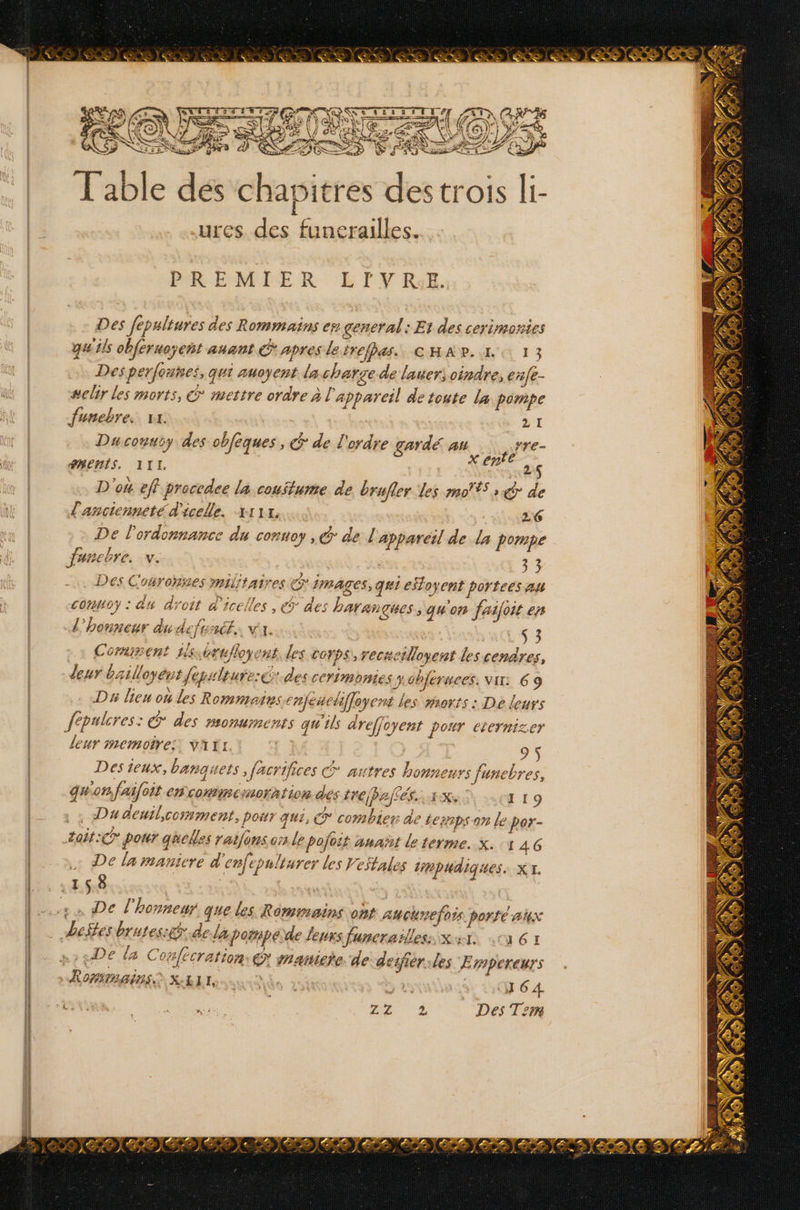 Table des chapitres des trois li-
ures des funerailles.
PREMIER LIVRE.
Des sepultures des Rommains en general: Et des cerimonies
qu'ils obseruoyent auant & apres le trespas. CHAP. I. 13
Des personnes, qui auoyent la charge de lauer, oindre, ense-
uelir les morts, & mettre ordre à l'appareil de toute la pompe
funebre. II. 21
Du conuoy des obseques, & de l'ordre gardé au
ments. III. 25
D'où est procedee la coustume de brusler les morts, & de
l'ancienneté d'icelle. IIII. 26
De l'ordonnance du conuoy, & de l'appareil de la pompe
funebre. V. 33
Des Couronnes militaires & images, qui estoyent portees au
conuoy: du droit d'icelles, & des harangues, qu'on faisoit en
l'honneur du defunct. VI. 53
Comment ils brusloyent les corps, recueilloyent les cendres,
leur bailloyent sepulture: & des cerimonies y obseruees. VII. 69
Du lieu où les Rommains enseuelissoyent les morts: De leurs
sepulcres: & des monuments qu'ils dressoyent pour eterniser
leur memoire. VIII. 95
Des ieux, banquets, sacrifices & autres honneurs funebres,
qu'on faisoit en commemoration des trespassés. IX. 119
Du deuil, comment, pour qui, & combien de temps on le por-
toit: & pour quelles raisons on le posoit auant le terme. X. 146
De la maniere d'ensepulturer les Vestales impudiques. XI.
158
De l'honneur que les Rommains ont aucunefois porté aux
bestes brutes: & de la pompe de leurs funerailles. XII. 161
De la Consecration: & maniere de deifier les Empereurs
Rommains. XIII. 164
ZZ 2 Des Tem